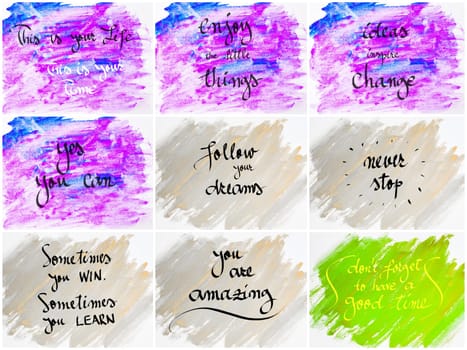 This is your Life
This is your
time
enjoy
the little
things
ideas
inspire
change
yes
you can
follow
your
dreams
never
stop
Sometimes
you WIN.
Sometimes
you LEARN
you
are
amazing
don't forget
to have a
good time